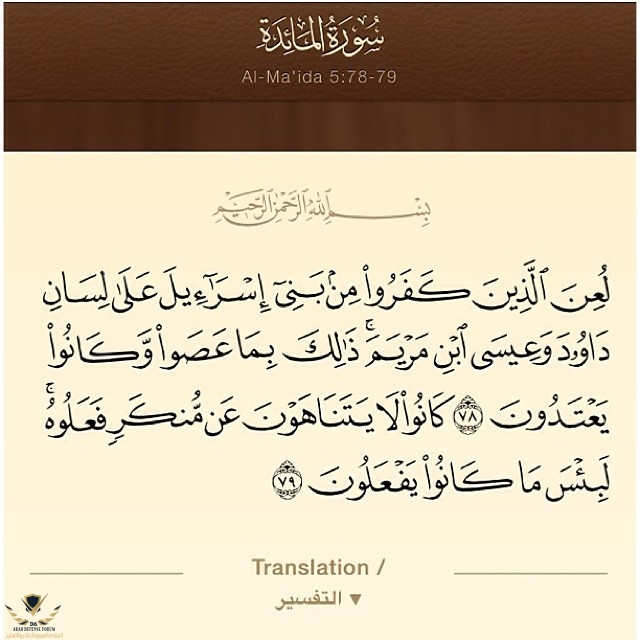 سُورَةُ المَائِدَةِ
Al-Ma'ida 5:78-79
بِسْمِ ٱللَّهِ ٱلرَّحْمَٰنِ ٱلرَّحِيمِ
لُعِنَ ٱلَّذِينَ كَفَرُوا۟ مِنۢ بَنِىٓ إِسْرَٰٓءِيلَ عَلَىٰ لِسَانِ
دَاوُۥدَ وَعِيسَى ٱبْنِ مَرْيَمَ ۚ ذَٰلِكَ بِمَا عَصَوا۟ وَّكَانُوا۟
يَعْتَدُونَ ٧٨ كَانُوا۟ لَا يَتَنَاهَوْنَ عَن مُّنكَرٍ فَعَلُوهُ ۚ
لَبِئْسَ مَا كَانُوا۟ يَفْعَلُونَ ٧٩
Translation /
التفسير ▼
DA
ARAB DEFENSE FORUM